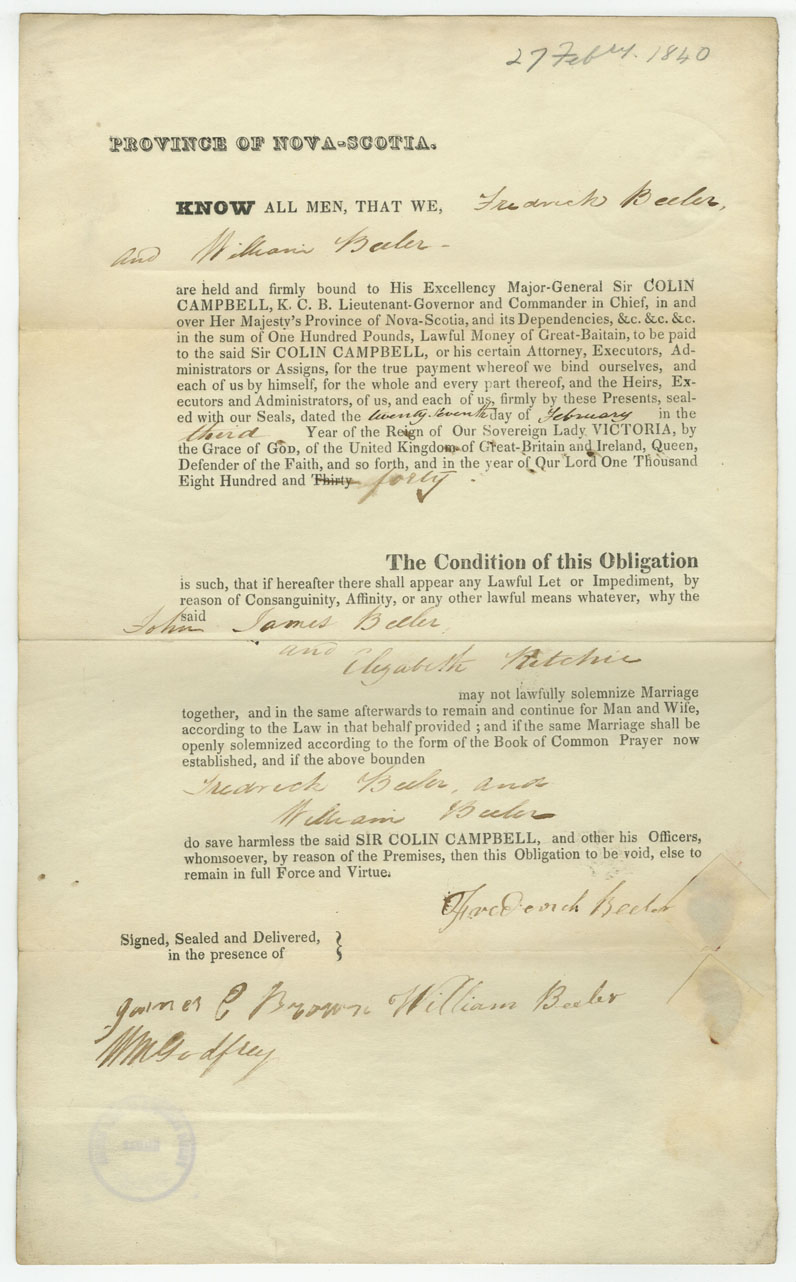 27 Febry. 1840
PROVINCE OF NOVA-SCOTIA.
KNOW ALL MEN, THAT WE, Fredrick Beeler,
and William Beeler -
are held and firmly bound to His Excellency Major-General Sir COLIN
CAMPBELL, K. C. B. Lieutenant-Governor and Commander in Chief, in and
over Her Majesty's Province of Nova-Scotia, and its Dependencies, &c. &c. &c.
in the sum of One Hundred Pounds, Lawful Money of Great-Baitain, to be paid
to the said Sir COLIN CAMPBELL, or his certain Attorney, Executors, Ad-
ministrators or Assigns, for the true payment whereof we bind ourselves, and
each of us by himself, for the whole and every part thereof, and the Heirs, Ex-
ecutors and Administrators, of us, and each of us, firmly by these Presents, seal-
ed with our Seals, dated the twenty seventh day of February in the
third Year of the Reign of Our Sovereign Lady VICTORIA, by
the Grace of GOD, of the United Kingdom of Great-Britain and Ireland, Queen,
Defender of the Faith, and so forth, and in the year of Our Lord One Thousand
Eight Hundred and Thirty forty.
The Condition of this Obligation
is such, that if hereafter there shall appear any Lawful Let or Impediment, by
reason of Consanguinity, Affinity, or any other lawful means whatever, why the
said
John James Beeler,
and
Elizabeth Ritchie
may not lawfully solemnize Marriage
together, and in the same afterwards to remain and continue for Man and Wife,
according to the Law in that behalf provided ; and if the same Marriage shall be
openly solemnized according to the form of the Book of Common Prayer now
established, and if the above bounden
Fredrick Beeler, and
William Beeler
do save harmless the said SIR COLIN CAMPBELL, and other his Officers,
whomsoever, by reason of the Premises, then this Obligation to be void, else to
remain in full Force and Virtue.
Frederick Beeler
Signed, Sealed and Delivered,
in the presence of
James C Brown William Beeler
WM Godfrey